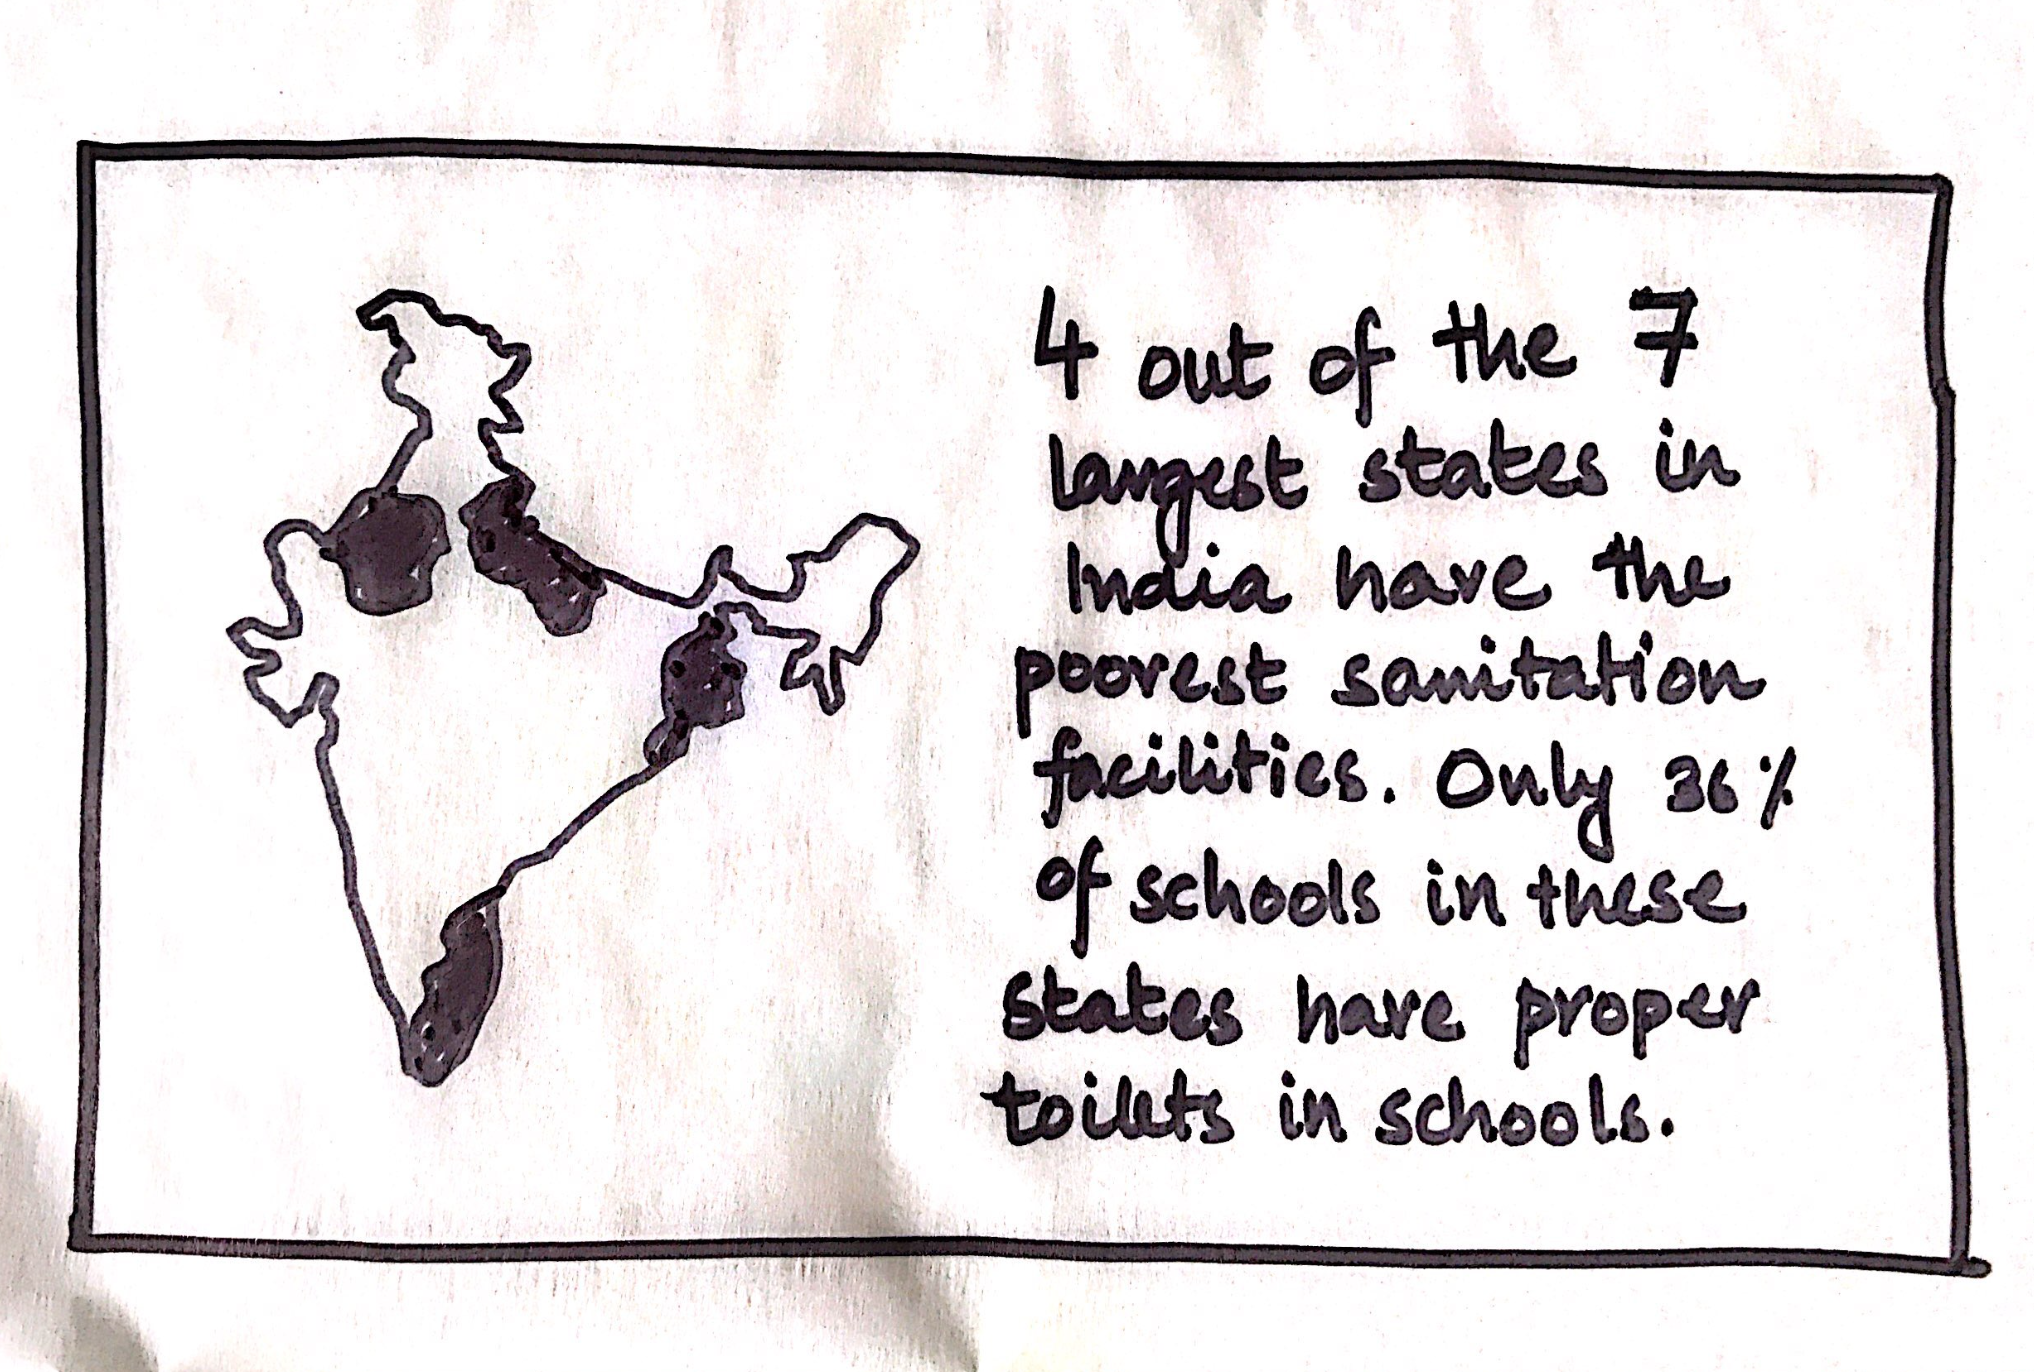 4 out of the 7
largest states in
India have the
poorest sanitation
facilities. Only 36%
of schools in these
states have proper
toilets in schools.